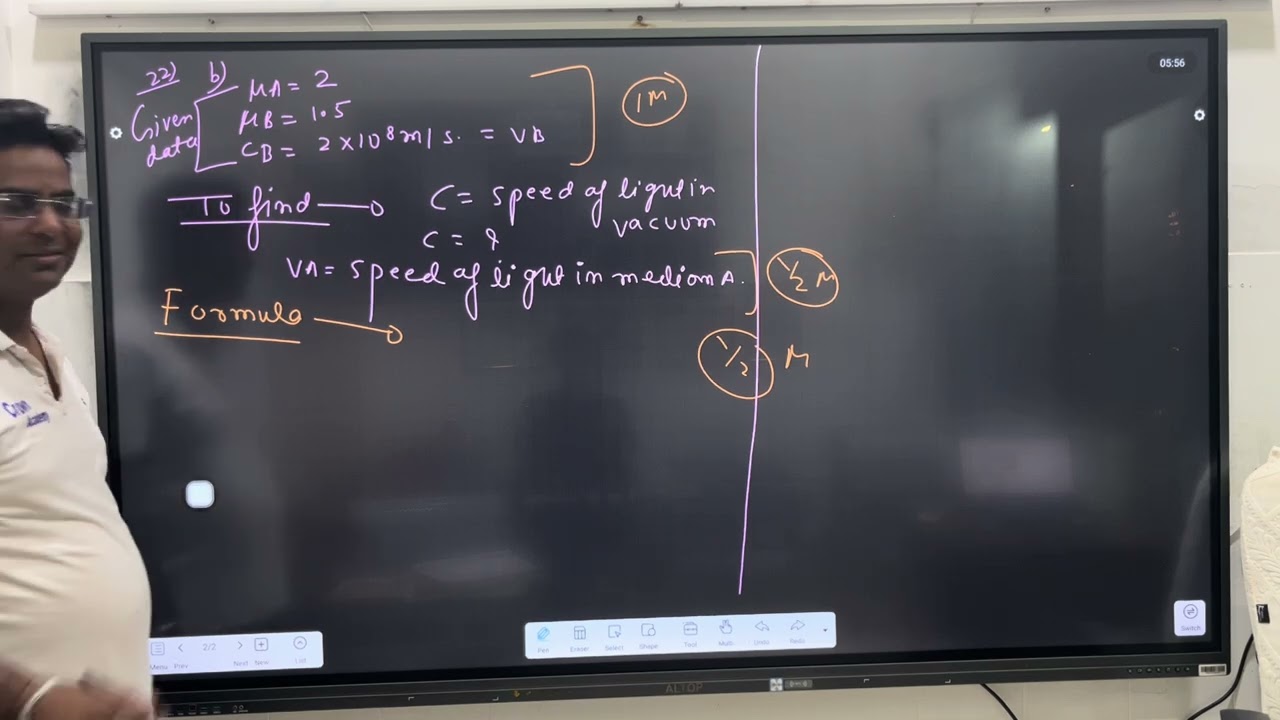 22) b)
Given data
μA = 2
μB = 1.5
CB = 2×10⁸ m/s. = VB
1M
To find
C = speed of light in vacuum
C = ?
VA = speed of light in mediom A.
1/2 M
Formula
1/2 M
05:56
Menu Prev 2/2 Next New List
Pen Eraser Select Shape Tool Multi. Undo Redo
Switch
ALTOP
Academy